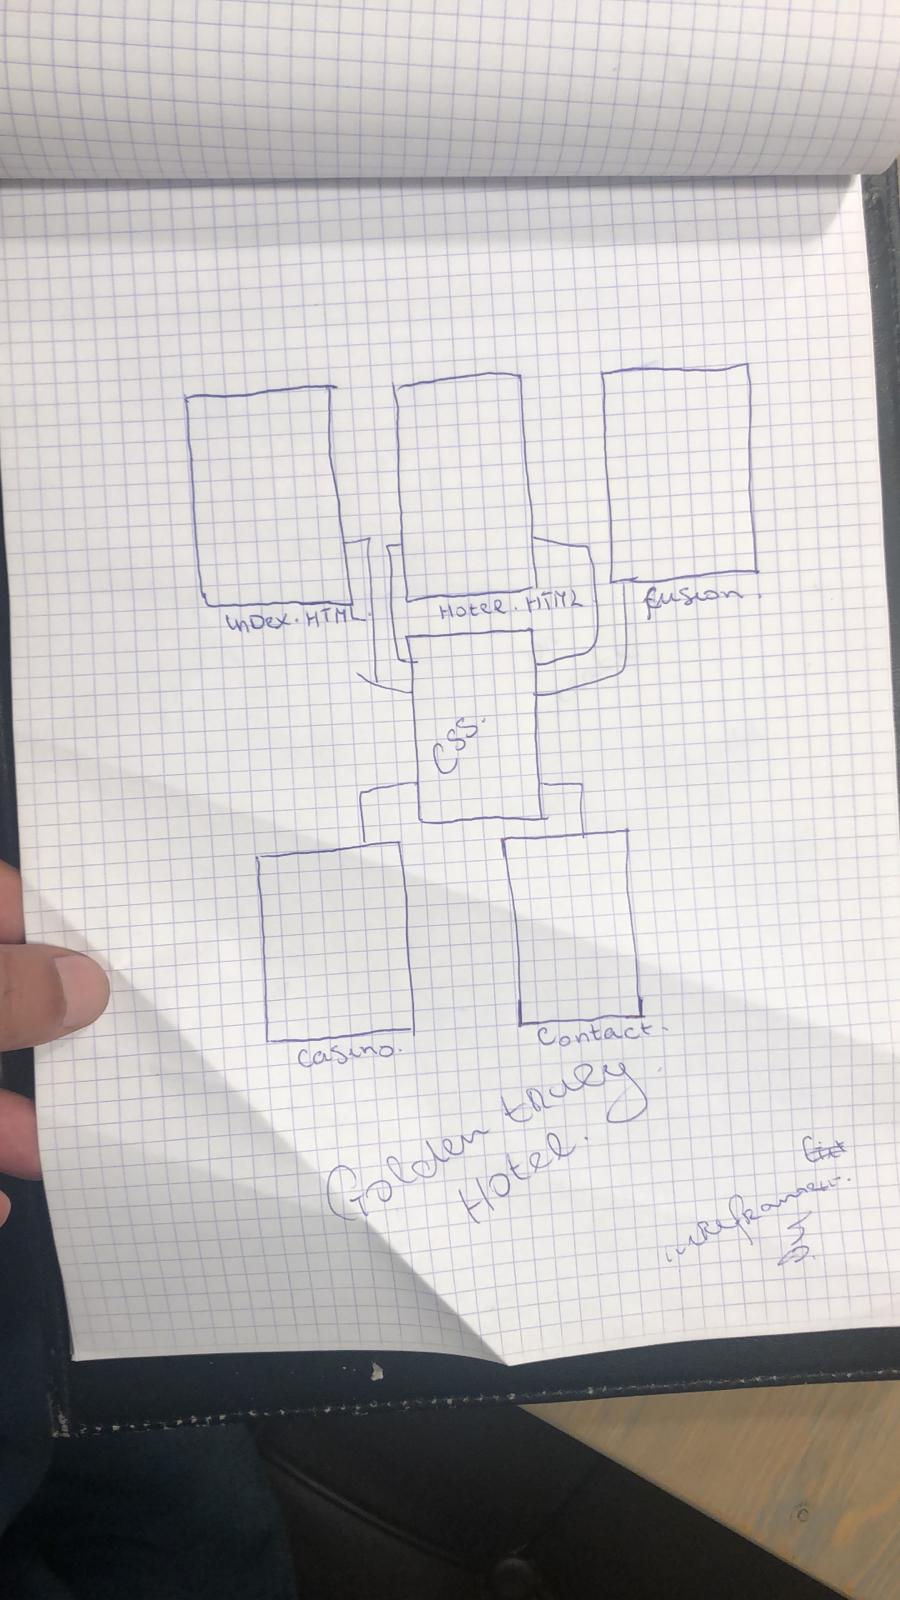 inDex.HTML
Hotel.HTML
fusion.
CSS.
Casino.
Contact.
Golden
Hotel.